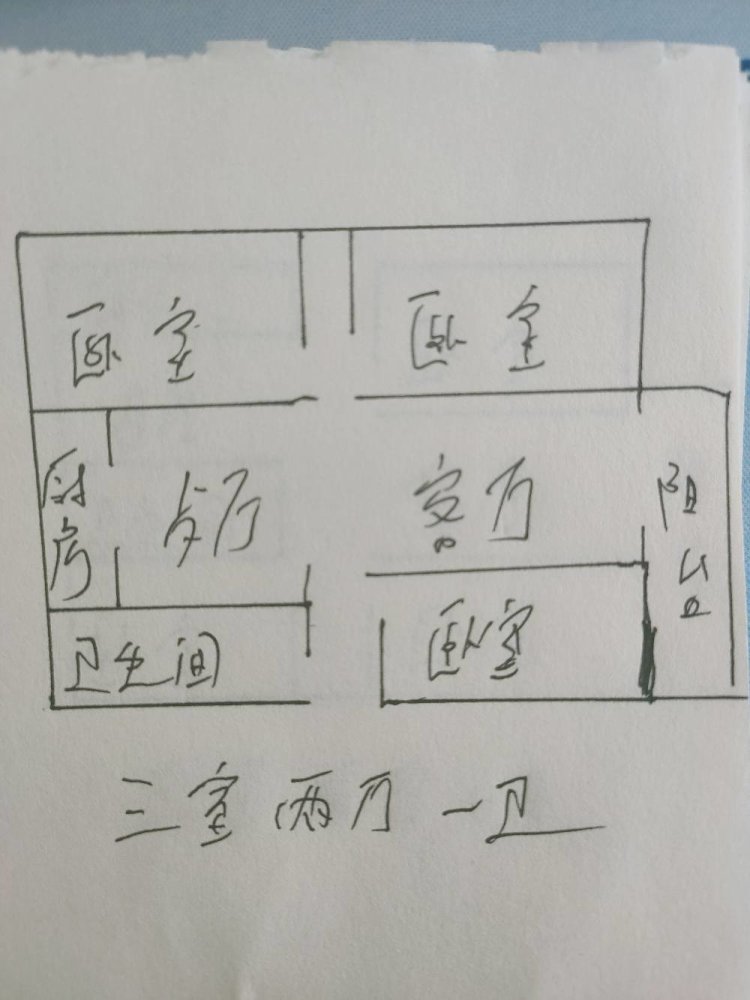 卧室 卧室
厨房 餐厅 客厅 阳台
卫生间 卧室
三室两厅一卫